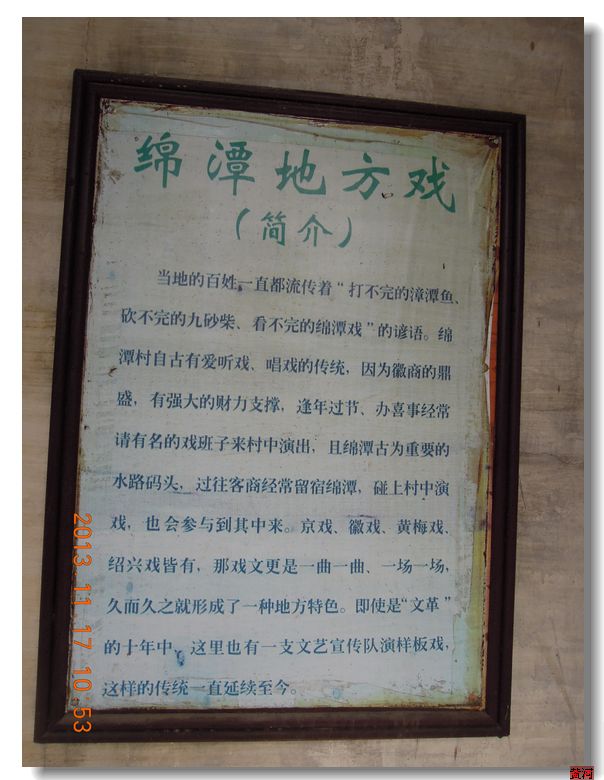 绵潭地方戏
（简介）
当地的百姓一直都流传着“打不完的漳潭鱼、
砍不完的九砂柴、看不完的绵潭戏”的谚语。绵
潭村自古有爱听戏、唱戏的传统，因为徽商的鼎
盛，有强大的财力支撑，逢年过节、办喜事经常
请有名的戏班子来村中演出，且绵潭古为重要的
水路码头，过往客商经常留宿绵潭，碰上村中演
戏，也会参与到其中来。京戏、徽戏、黄梅戏、
绍兴戏皆有，那戏文更是一曲一曲、一场一场，
久而久之就形成了一种地方特色。即使是“文革”
的十年中，这里也有一支文艺宣传队演样板戏，
这样的传统一直延续至今。
2013 11 17 10 53